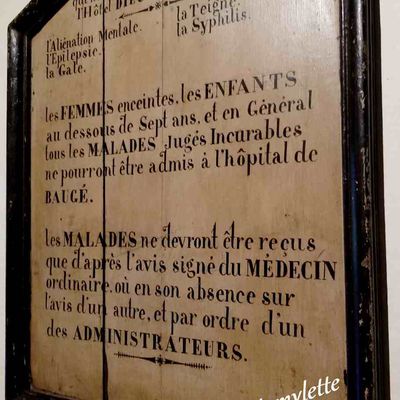 l'Hôtel DIEU
l'Aliénation Mentale. la Teigne.
l'Epilepsie. la Syphilis.
la Gale.
les FEMMES enceintes, les ENFANTS
au dessous de Sept ans, et en Général
tous les MALADES Jugés Incurables
ne pourront être admis à l'hôpital de
BAUGÉ.
les MALADES ne devront être reçus
que d'après l'avis signé du MÉDECIN
ordinaire, où en son absence sur
l'avis d'un autre, et par ordre d'un
des ADMINISTRATEURS.
mylette